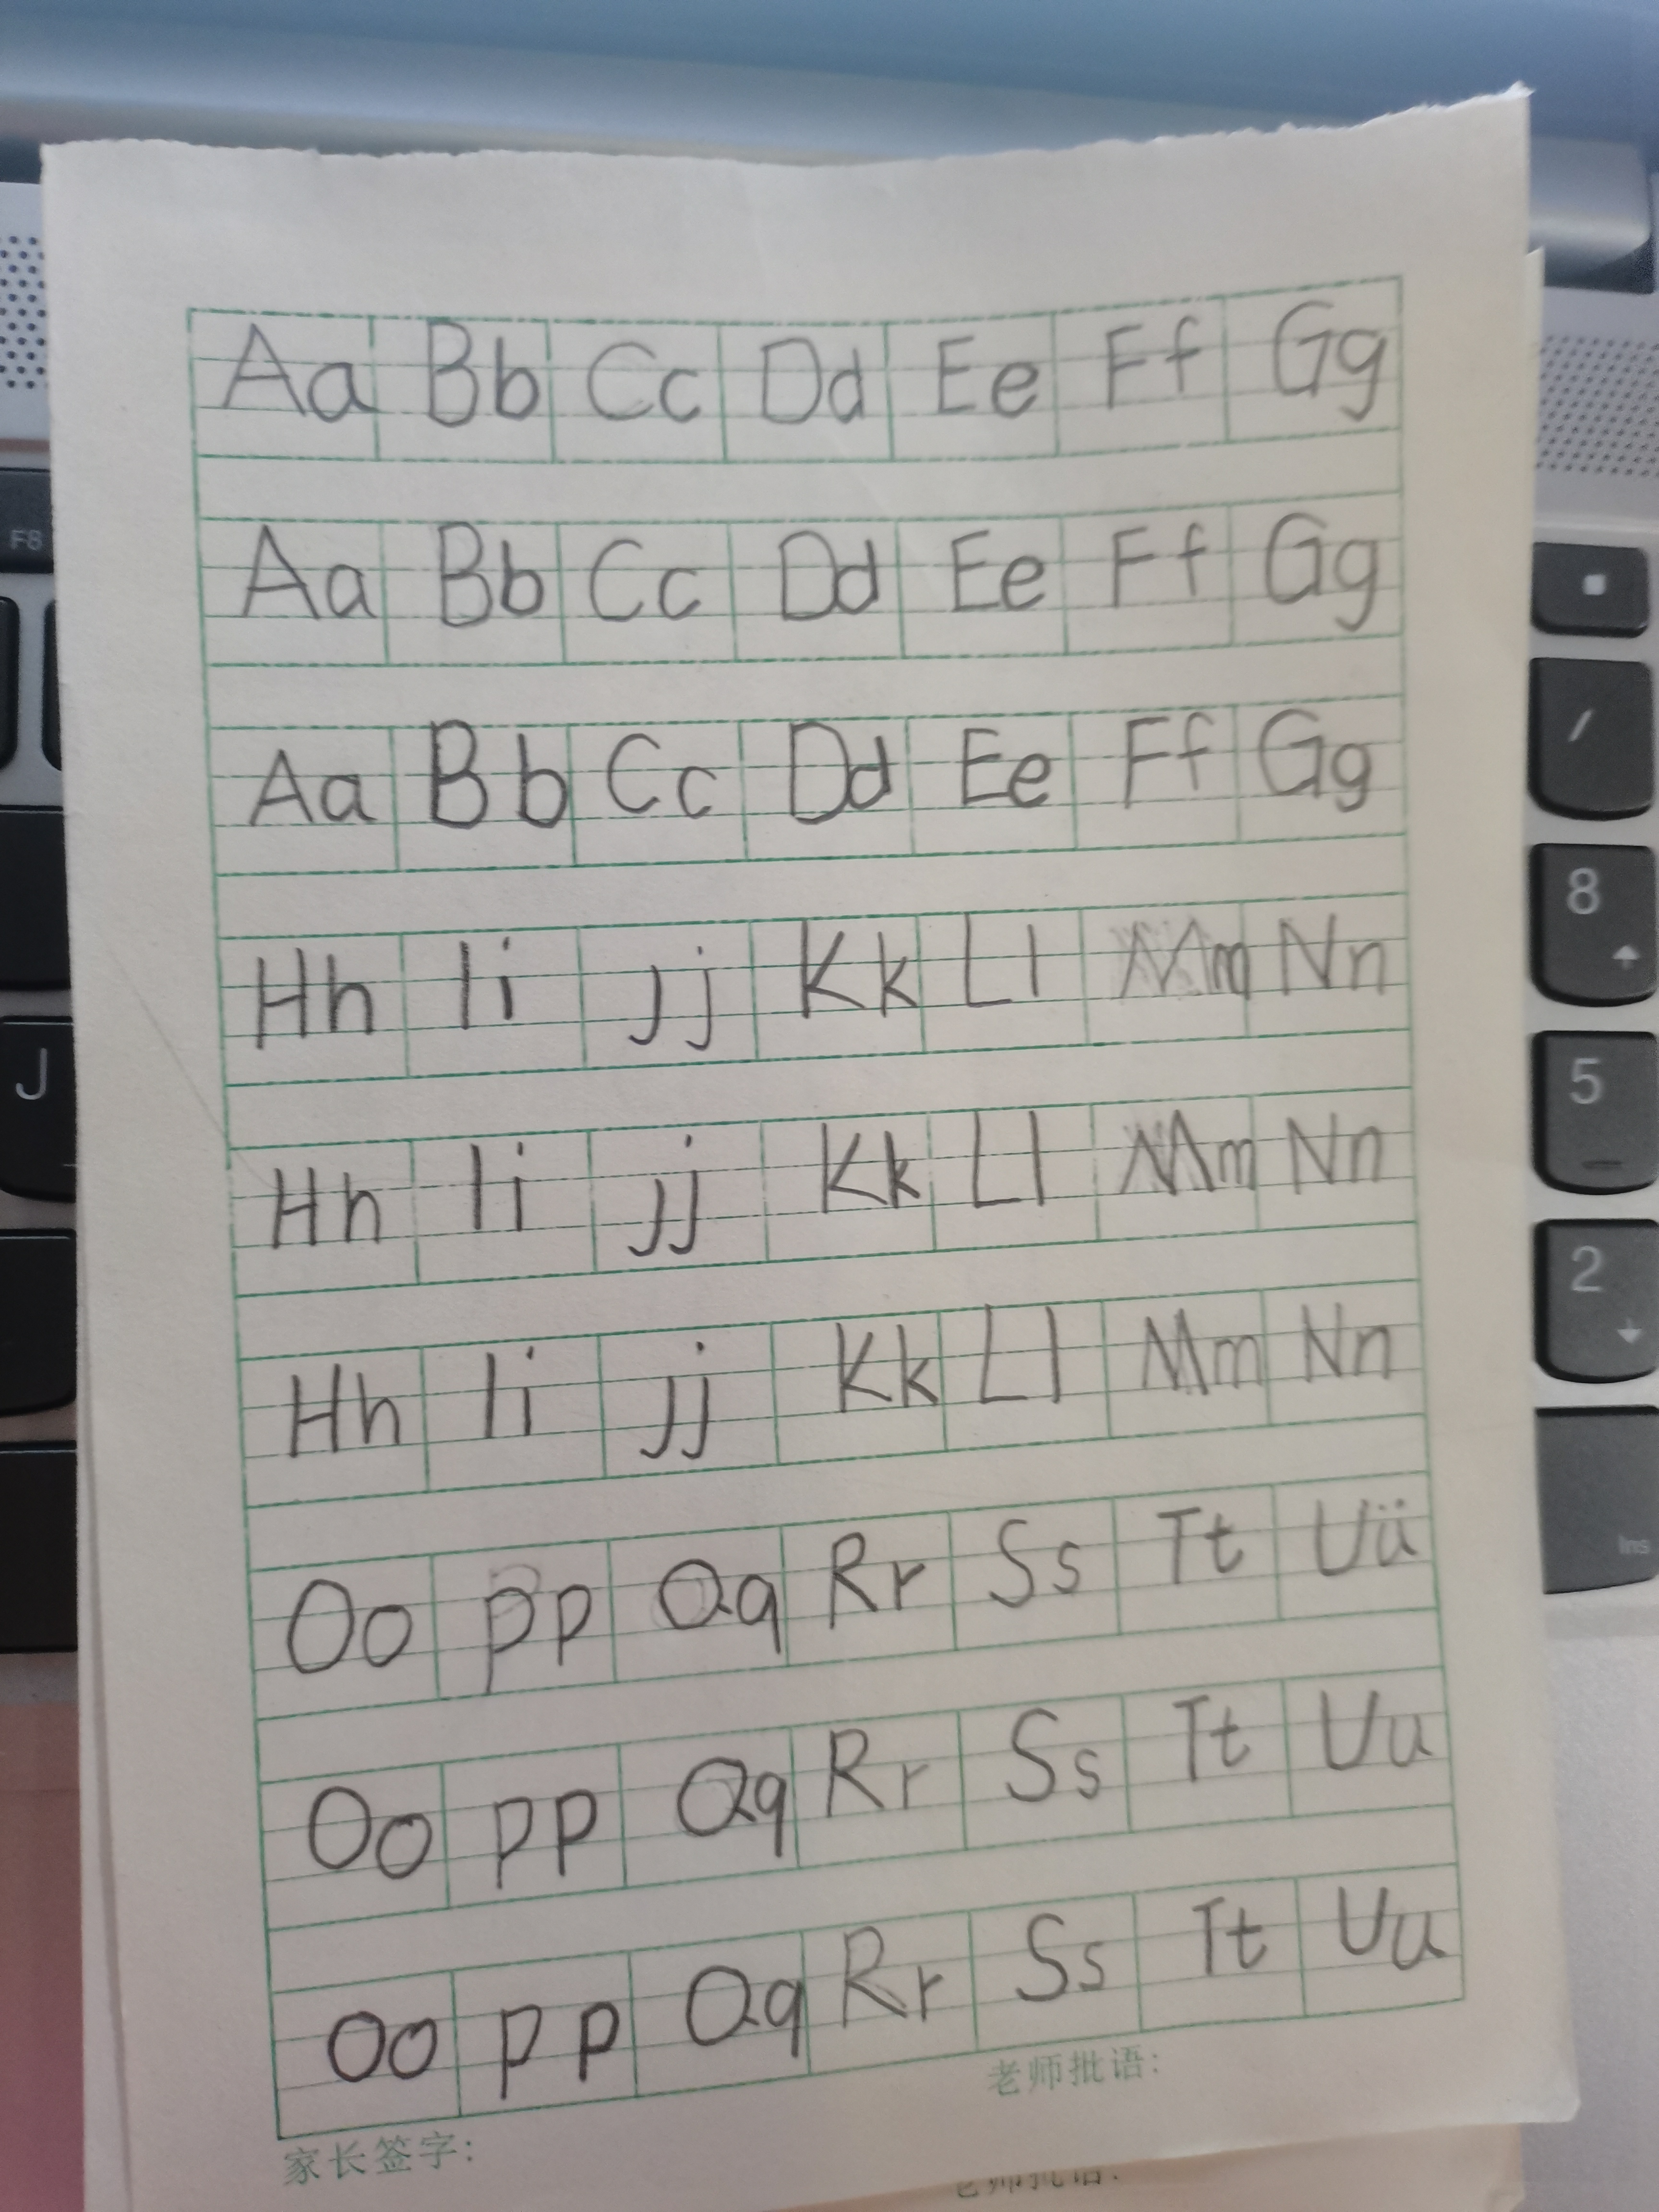 Aa Bb Cc Dd Ee Ff Gg
Aa Bb Cc Dd Ee Ff Gg
Aa Bb Cc Dd Ee Ff Gg
Hh Ii Jj Kk Ll Mm Nn
Hh Ii Jj Kk Ll Mm Nn
Hh Ii Jj Kk Ll Mm Nn
Oo Pp Qq Rr Ss Tt Uü
Oo Pp Qq Rr Ss Tt Uu
Oo Pp Qq Rr Ss Tt Uu
老师批语:
家长签字:
老师批语:
F8
J
8
5
2
Ins